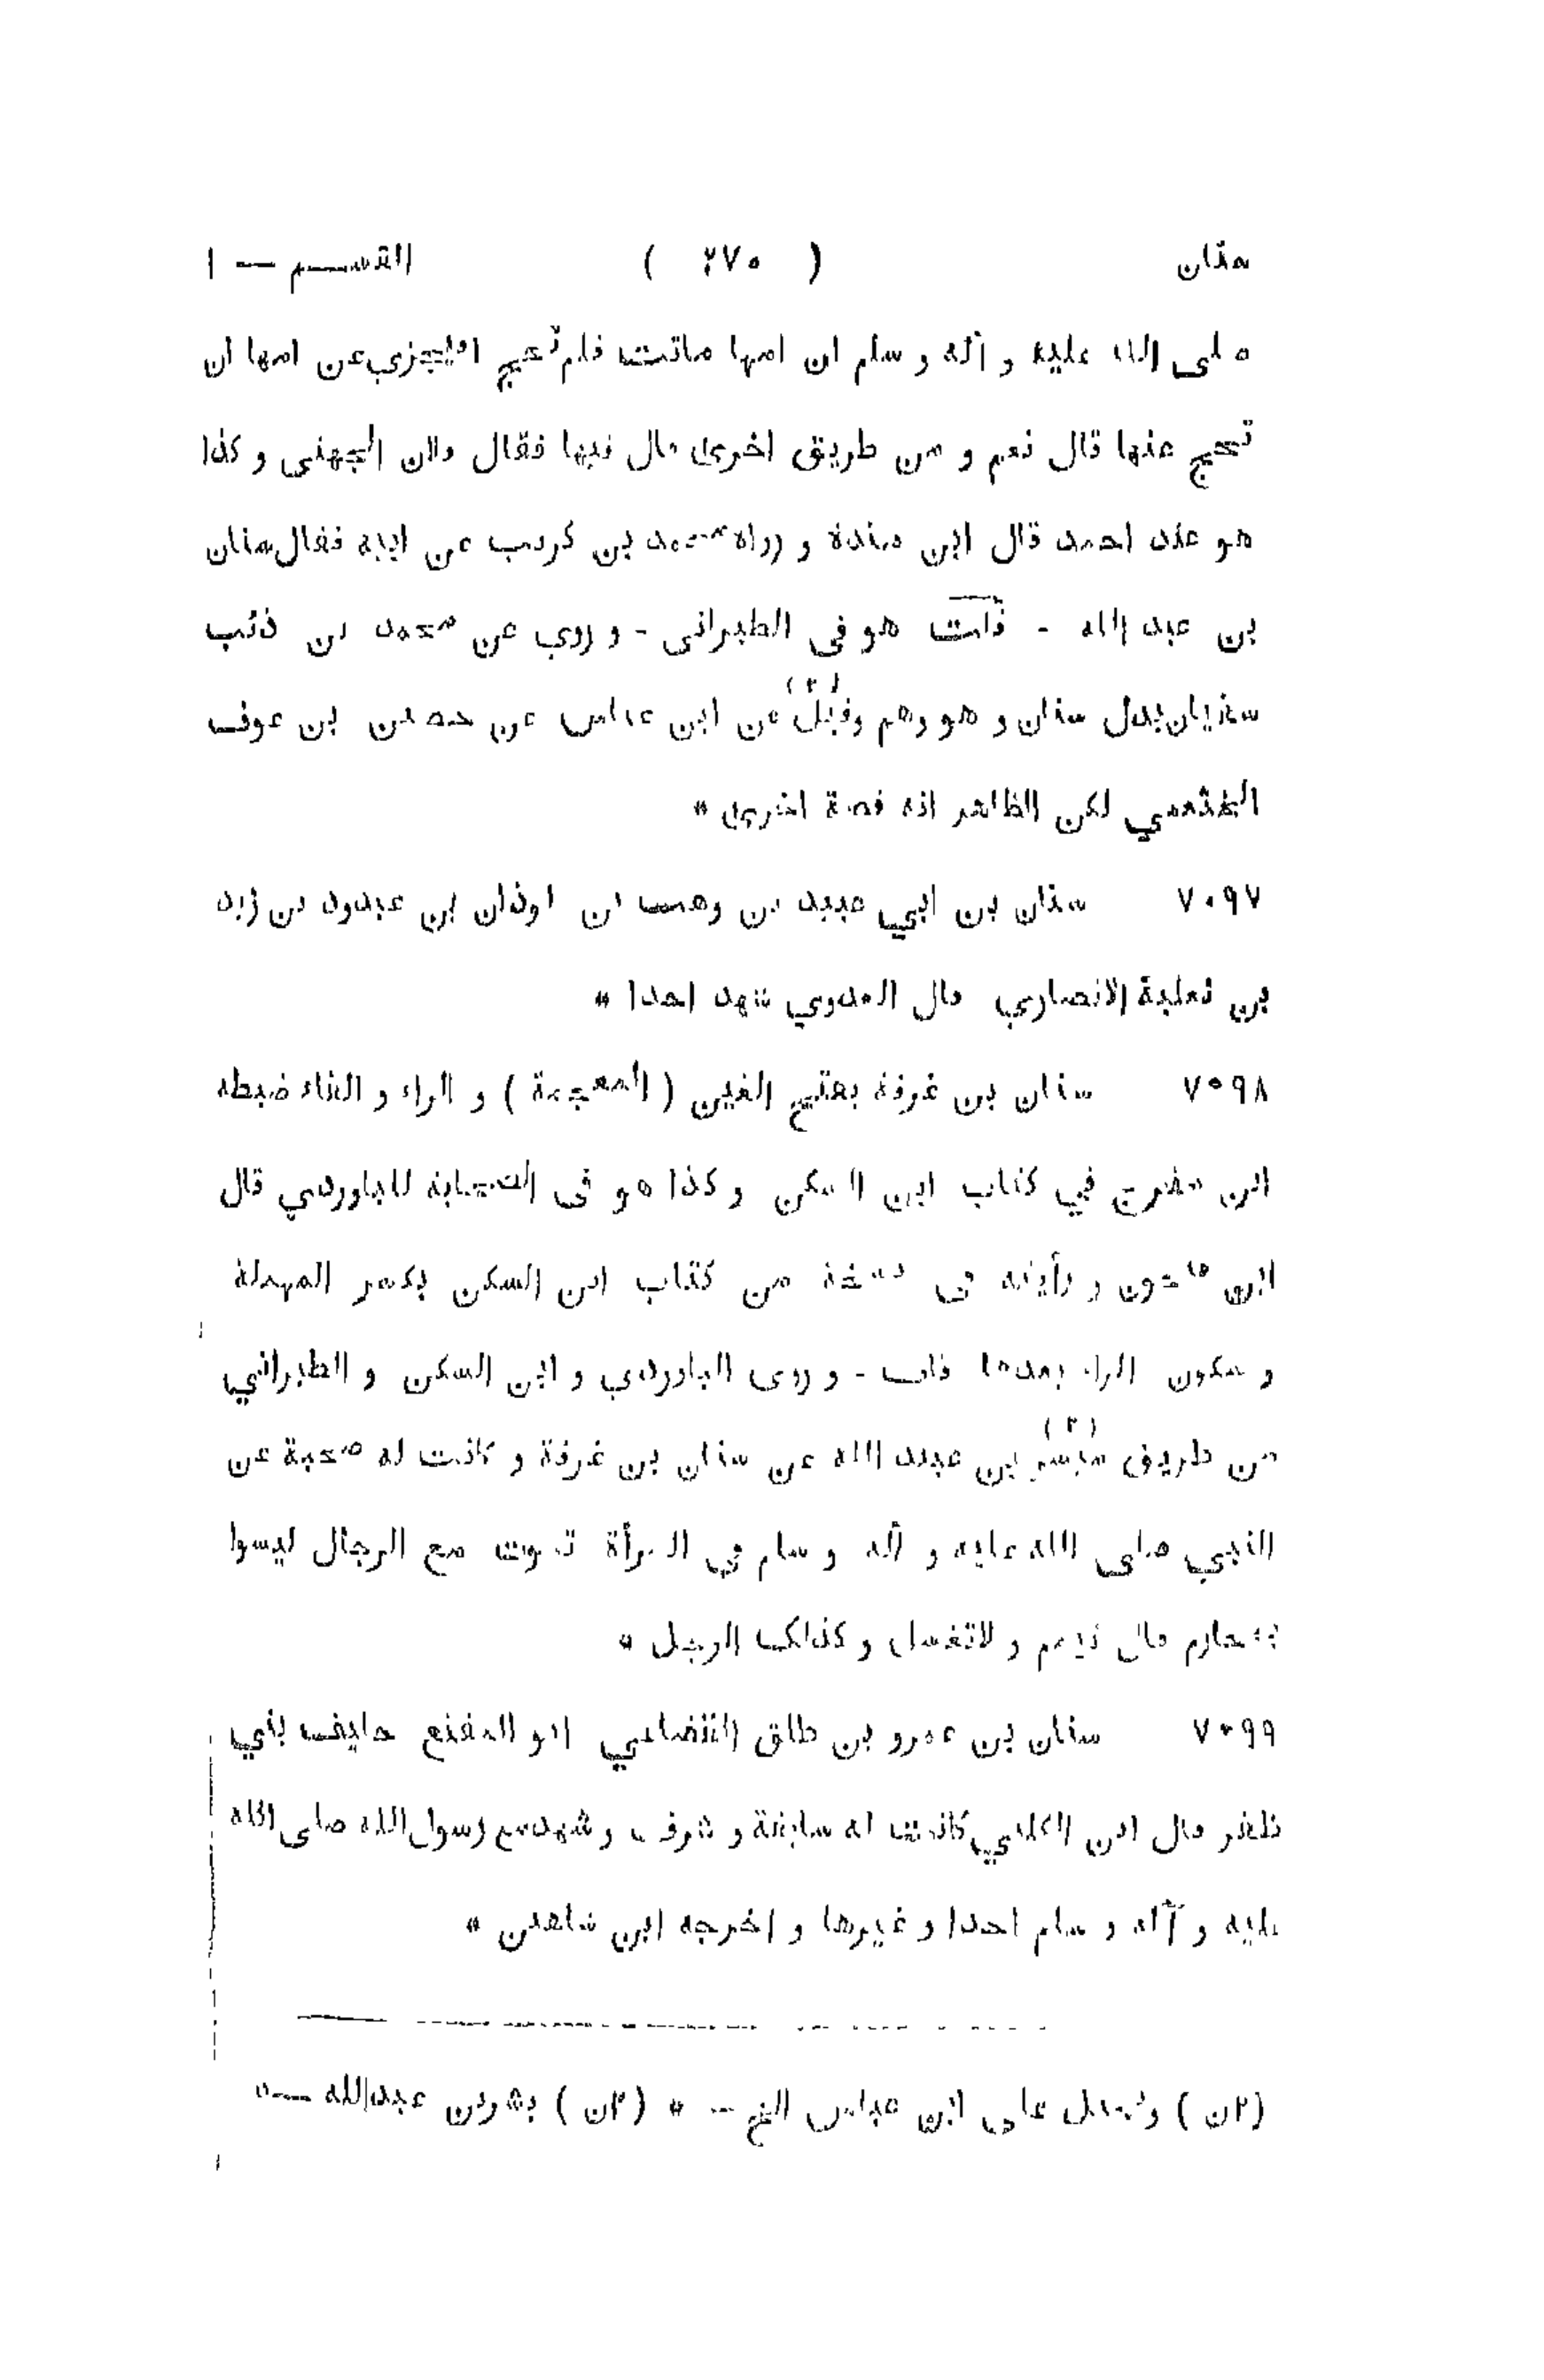 سنان ( ٢٧٠ ) القســـم — ا
صلى الله عليه و آله و سلم ان امها ماتت فلم تحج افيجزي عن امها ان
تحج عنها قال نعم و من طريق اخرى قال فيها فقال فلان الجهنى و كذا
هو عند احمد قال ابن مندة و رواه محمد بن كريب عن ابيه فقال سنان
بن عبد الله - قلت هو فى الطبرانى - و روي عن محمد بن
سفيان بدل سنان و هو وهم وقيل (٢) عن ابن عباس عن حصين بن عوف
الخثعمي لكن الظاهر انه قصة اخرى *
٧٠٩٧ سنان بن ابي عبيد بن وهب بن لوذان بن عبدود بن زيد
بن ثعلبة الانصاري قال العدوي شهد احدا *
٧٠٩٨ سنان بن غرفة بفتح الغين ( المعجمة ) و الراء و الفاء ضبطه
ابن مفرج في كتاب ابن السكن و كذا هو فى الصحابة للباوردي قال
ابن فتحون و رأيته فى نسخة من كتاب ابن السكن بكسر المهملة
و سكون الراء بعدها قاف - و روى الباوردي و ابن السكن و الطبراني
من طريق مبشر (٣) بن عبيد الله عن سنان بن غرفة و كانت له صحبة عن
النبي صلى الله عليه و آله و سلم فى المرأة تموت مع الرجال ليسوا
بمحارم قال تيمم و لا تغسل و كذلك الرجل *
٧٠٩٩ سنان بن عمرو بن طلق القضاعي ابو المقنع حليف بني
ظفر قال ابن الكلبي كانت له سابقة و شرف و شهد مع رسول الله صلى الله
عليه و آله و سلم احدا و غيرها و اخرجه ابن شاهين *
(٢ن) وقيل على ابن عباس الخ — * (٣ن) بشر بن عبدالله —*